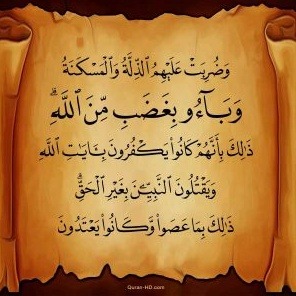 وَضُرِبَتْ عَلَيْهِمُ ٱلذِّلَّةُ وَٱلْمَسْكَنَةُ
وَبَآءُو بِغَضَبٍ مِّنَ ٱللَّهِ ۗ
ذَٰلِكَ بِأَنَّهُمْ كَانُوا۟ يَكْفُرُونَ بِـَٔايَـٰتِ ٱللَّهِ
وَيَقْتُلُونَ ٱلنَّبِيِّـۧنَ بِغَيْرِ ٱلْحَقِّ ۗ
ذَٰلِكَ بِمَا عَصَوا۟ وَّكَانُوا۟ يَعْتَدُونَ
Quran-HD.com